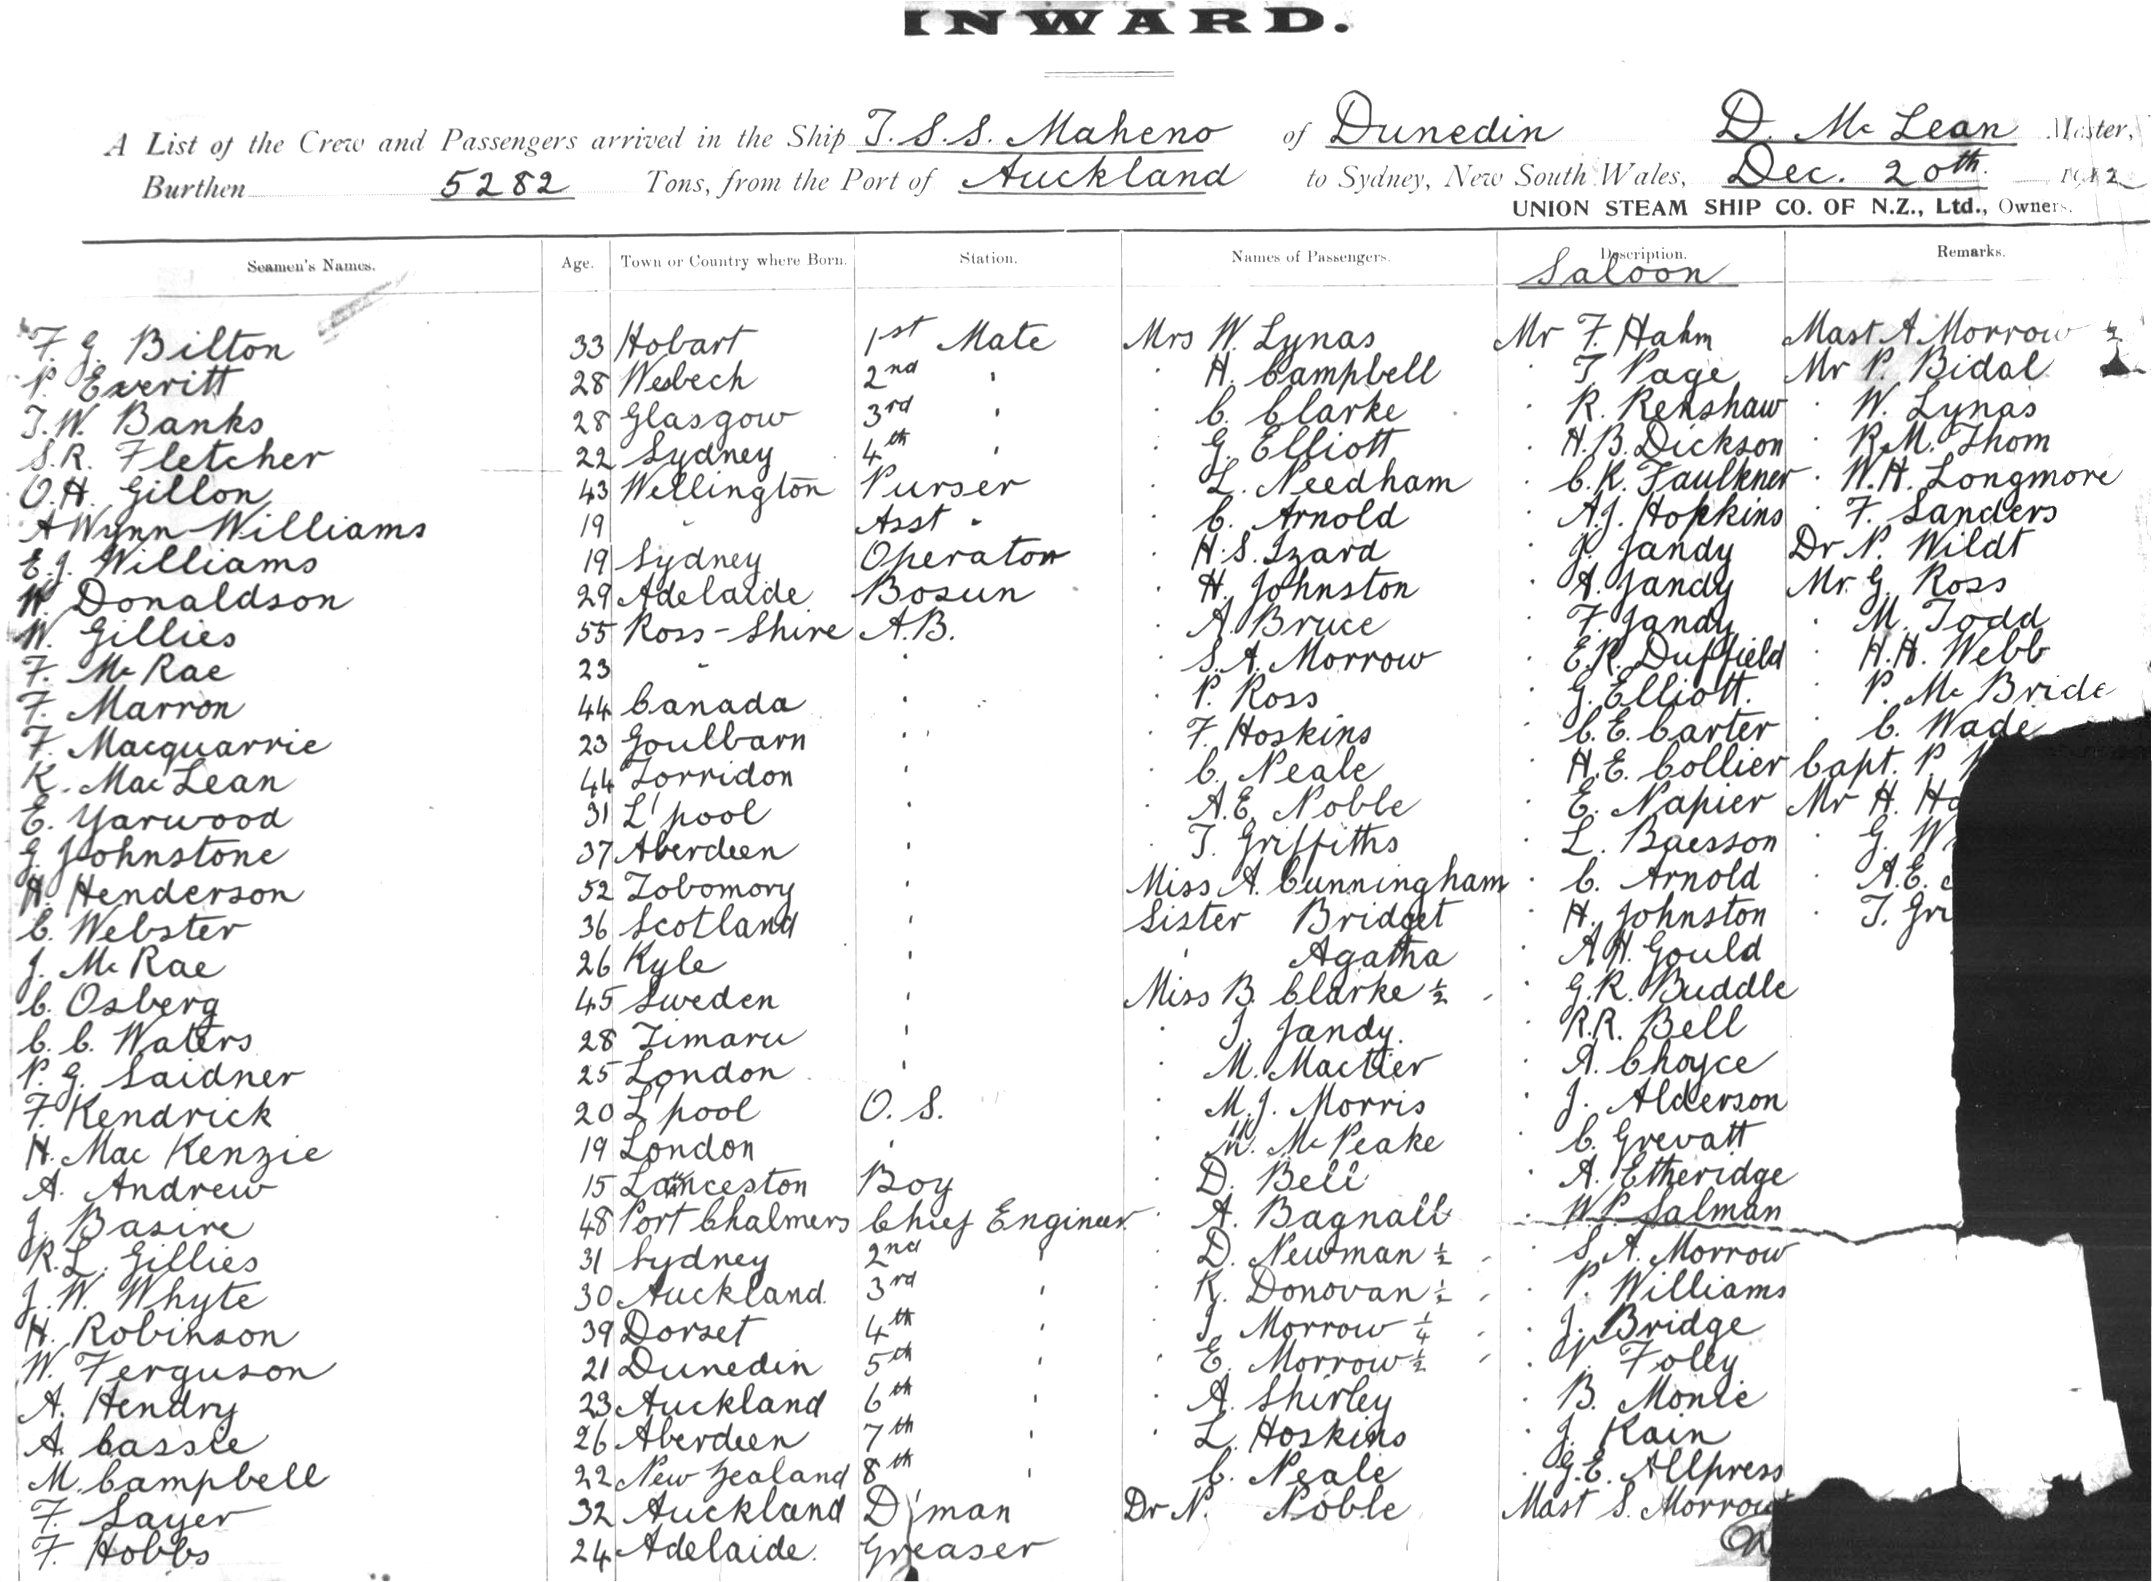 INWARD.
A List of the Crew and Passengers arrived in the Ship T.S.S. Maheno of Dunedin D. Mc Lean Master,
Burthen 5282 Tons, from the Port of Auckland to Sydney, New South Wales, Dec. 20th 1912
UNION STEAM SHIP CO. OF N.Z., Ltd., Owners.
Seamen's Names. Age. Town or Country where Born. Station. Names of Passengers. Description. Remarks.
Saloon
F. G. Bilton 33 Hobart 1st Mate Mrs W. Lynas Mr F. Hahm Mast A Morrow ½
P. Everitt 28 Wesbech 2nd " " H. Campbell " T Page Mr P. Bidal
T.W. Banks 28 Glasgow 3rd " " C. Clarke " R. Renshaw " W. Lynas
S.R. Fletcher 22 Sydney 4th " " G. Elliott " H.B. Dickson " R.M. Thom
O.H. Gillon 43 Wellington Purser " L. Needham " C.K. Faulkner " W.H. Longmore
A Wynn-Williams 19 " Asst " " C. Arnold " A.J. Hopkins " F. Sanders
E.J. Williams 19 Sydney Operator " H.S. Izard " J. Jandy Dr N. Wildt
W. Donaldson 29 Adelaide Bosun " H. Johnston " A. Jandy Mr G. Ross
W. Gillies 55 Ross-Shire A.B. " A. Bruce " F Jandy " M. Todd
F. Mc Rae 23 " " " S. A. Morrow " E.R. Duffield " H.H. Webb
F. Marron 44 Canada " " P. Ross " G. Elliott. " P. Mc Bride
F. Macquarrie 23 Goulbarn " " F. Hoskins " C.E. Carter " C. Wade
K. Mac Lean 44 Torridon " " C. Neale " H.E. Collier Capt. P
E. Yarwood 31 L'pool " " A.E. Noble " E. Napier Mr H. Ha
G. Johnstone 37 Aberdeen " " T. Griffiths " L. Baesson " G. W
H. Henderson 52 Tobomory " Miss A. Cunningham " C. Arnold " A.E.
C. Webster 36 Scotland " Sister Bridget " H. Johnston " T. Gri
J. Mc Rae 26 Kyle " " Agatha " A.H. Gould
C. Osberg 45 Sweden " Miss B. Clarke ½ " G.R. Buddle
C. C. Waters 28 Timaru " " J. Jandy. " R.R. Bell
P. G. Saidner 25 London " " M. Mactier " A. Choyce
F. Kendrick 20 L'pool O. S. " M.J. Morris " J. Alderson
H. Mac Kenzie 19 London " " M. Mc Peake " C. Grevatt
A. Andrew 15 Lanceston Boy " D. Bell " A. Etheridge
J. Basire 48 Port Chalmers Chief Engineer " A. Bagnall " W.P. Salman
R.L. Gillies 31 Sydney 2nd " " D. Newman ½ " S. A. Morrow
J. W. Whyte 30 Auckland. 3rd " " K. Donovan ½ " P. Williams
H. Robinson 39 Dorset 4th " " J Morrow ¼ " J. Bridge
W. Ferguson 21 Dunedin 5th " " E. Morrow ½ " Foley
A. Hendry 23 Auckland 6th " " A. Shirley " B. Monie
A. Cassie 26 Aberdeen 7th " " L. Hoskins " J. Kain
M. Campbell 22 New Zealand 8th " " C. Neale " G.E. Allpress
F. Sayer 32 Auckland D'man Dr N. Noble Mast S. Morrow
F. Hobbs 24 Adelaide. Greaser